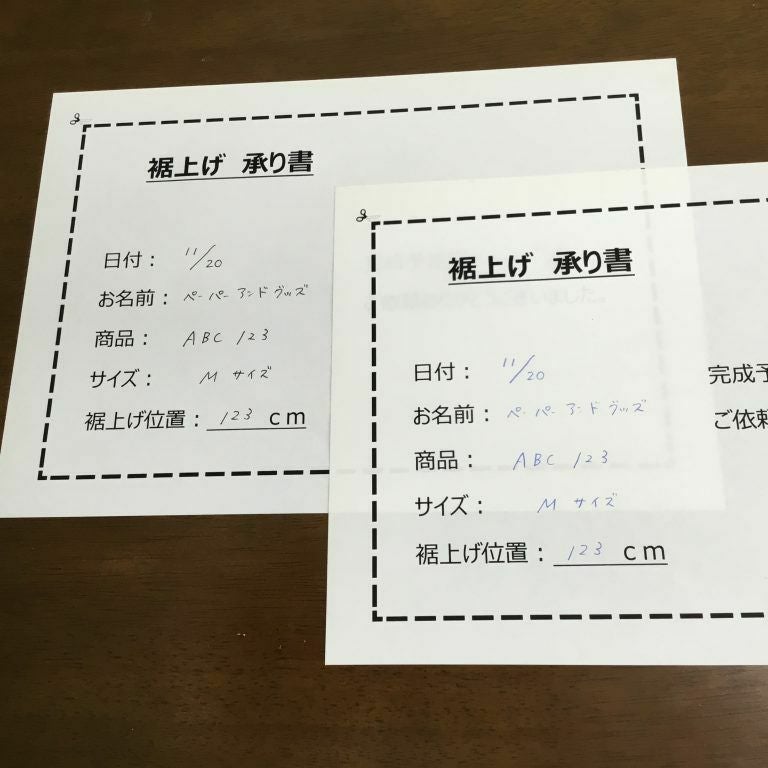 裾上げ 承り書
日付： 11/20
お名前： ペーパーアンドグッズ
商品： ABC 123
サイズ： M サイズ
裾上げ位置： 123 cm
裾上げ 承り書
日付： 11/20
お名前： ペーパーアンドグッズ
商品： ABC 123
サイズ： M サイズ
裾上げ位置： 123 cm
完成予
ご依頼
いました。